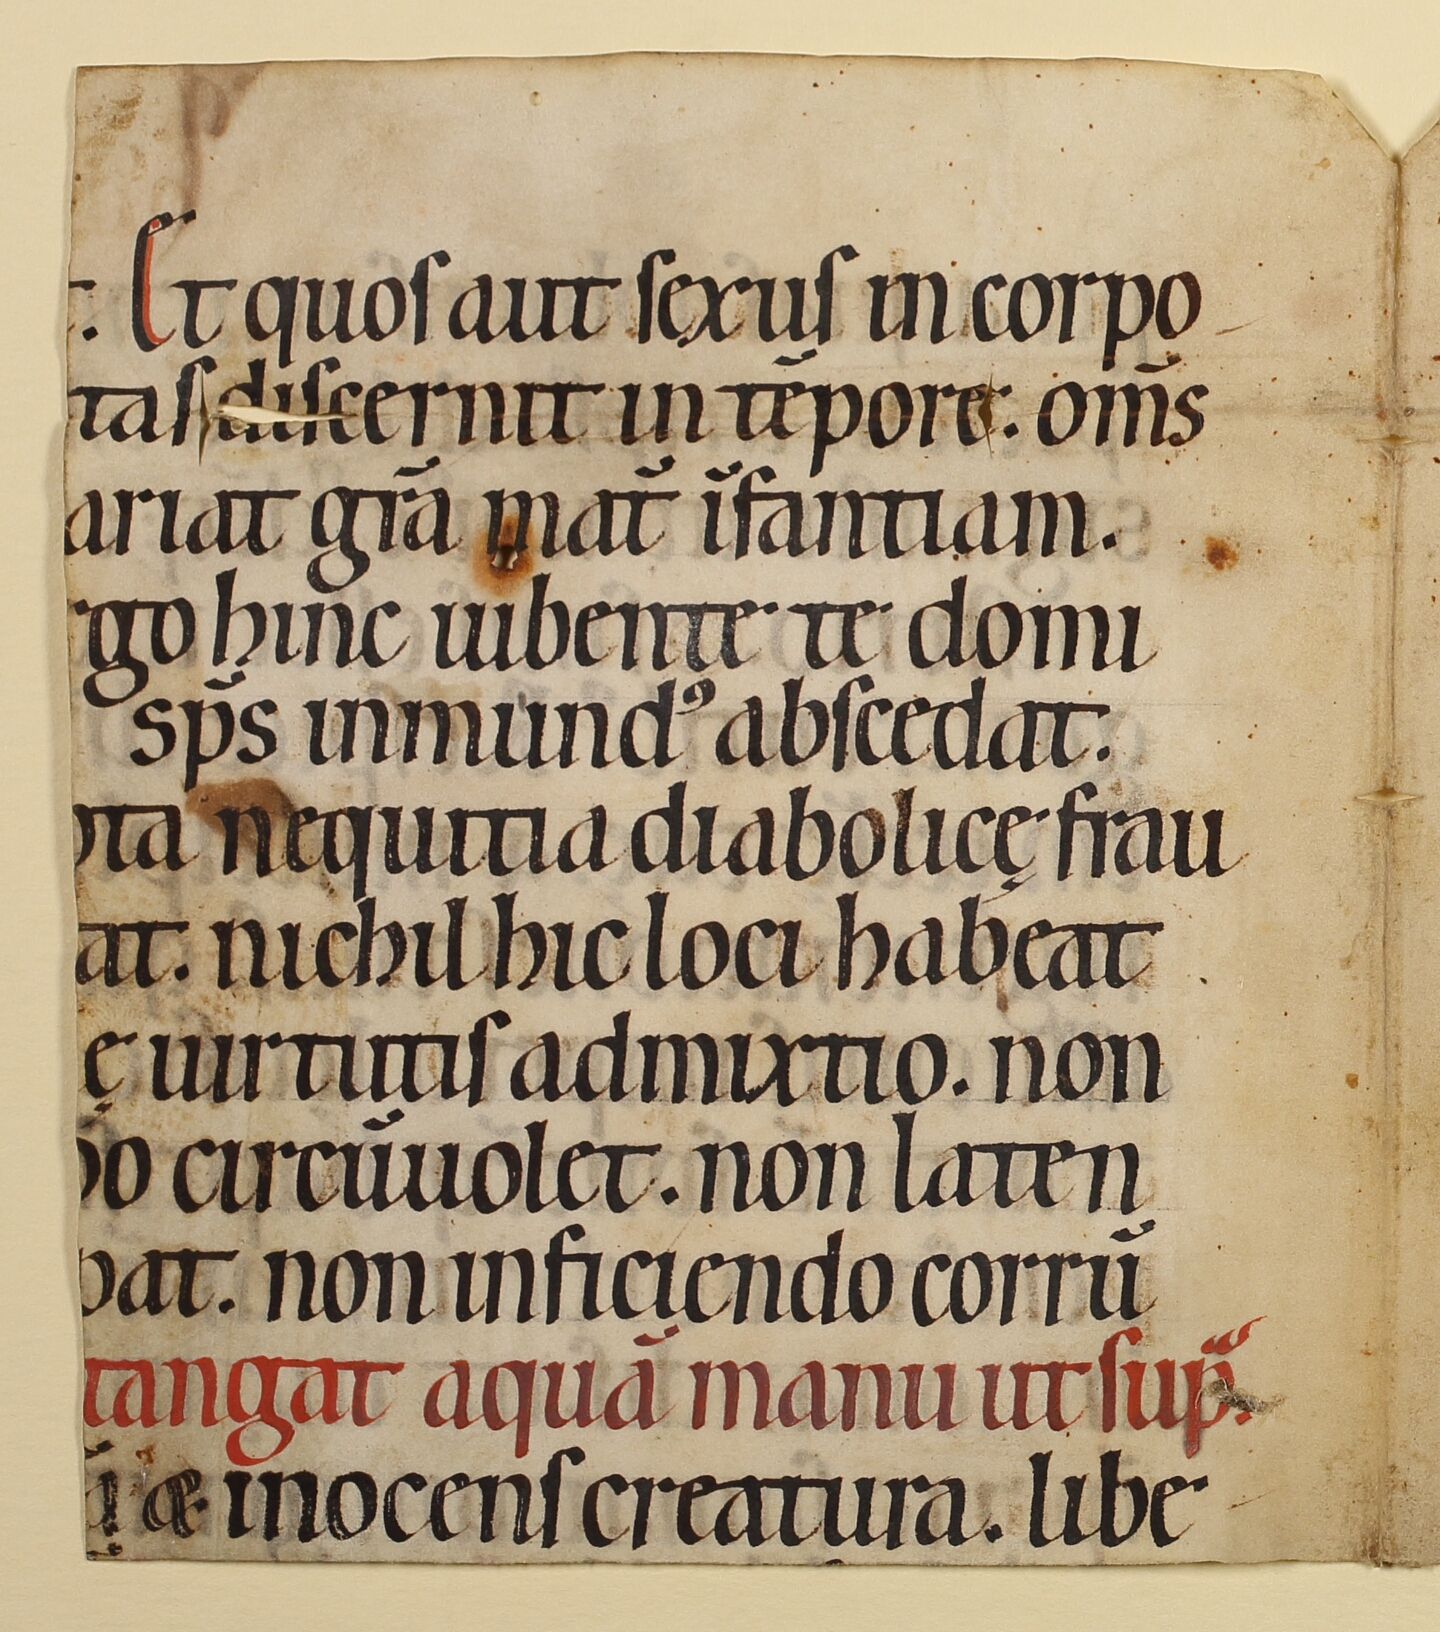 . Et quos aut sexus in corpo
tas discernit in tēpore: om̄s
ariat gr̄a mat̄ īfantiam.
go hinc iubente te domi
sp̄s inmundꝰ abscedat.
ota nequitia diabolicę frau
at. nichil hic loci habeat
ę uirtutis admixtio. non
do circūuolet. non laten
pat. non inficiendo corrū
tangat aquā manu ut sup̄.
æ inocens creatura. libe